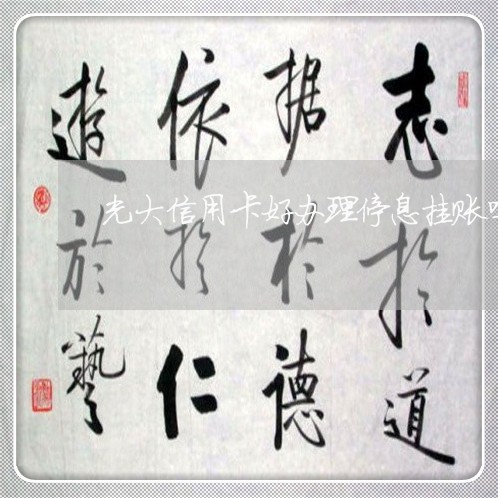 志於道
据於德
依於仁
遊於藝
光大信用卡好办理停息挂账